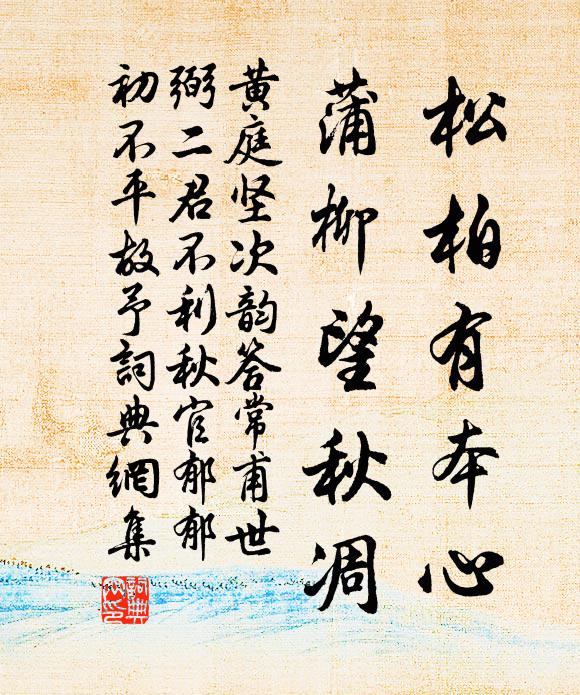 松柏有本心
蒲柳望秋凋
黄庭坚次韵答常甫世
弼二君不利秋官郁郁
初不平故予詞典網集